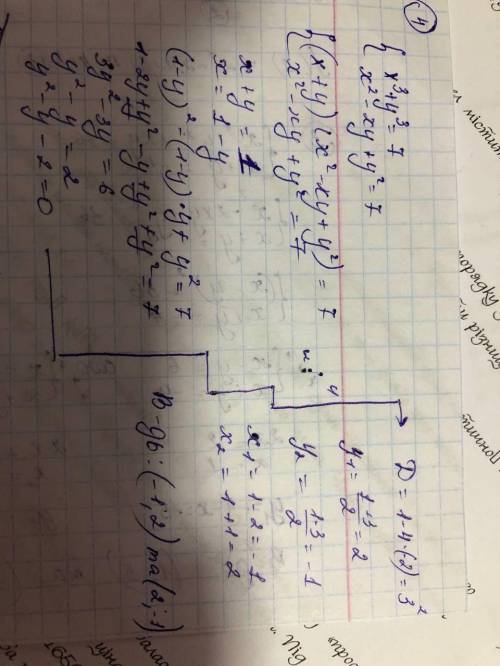 4
{ x³+y³=7
x²-xy+y²=7
{ (x+y)(x²-xy+y²)=7
x²-xy+y²=7
x+y=1
x=1-y
(1-y)²-(1-y)·y+y²=7
1-2y+y²-y+y²+y²=7
3y²-3y=6
y²-y=2
y²-y-2=0
D=1-4·(-2)=3²
y₁=1+3/2=2
y₂=1-3/2=-1
x₁=1-2=-1
x₂=1+1=2
В-дь: (-1;2) та (2;-1)